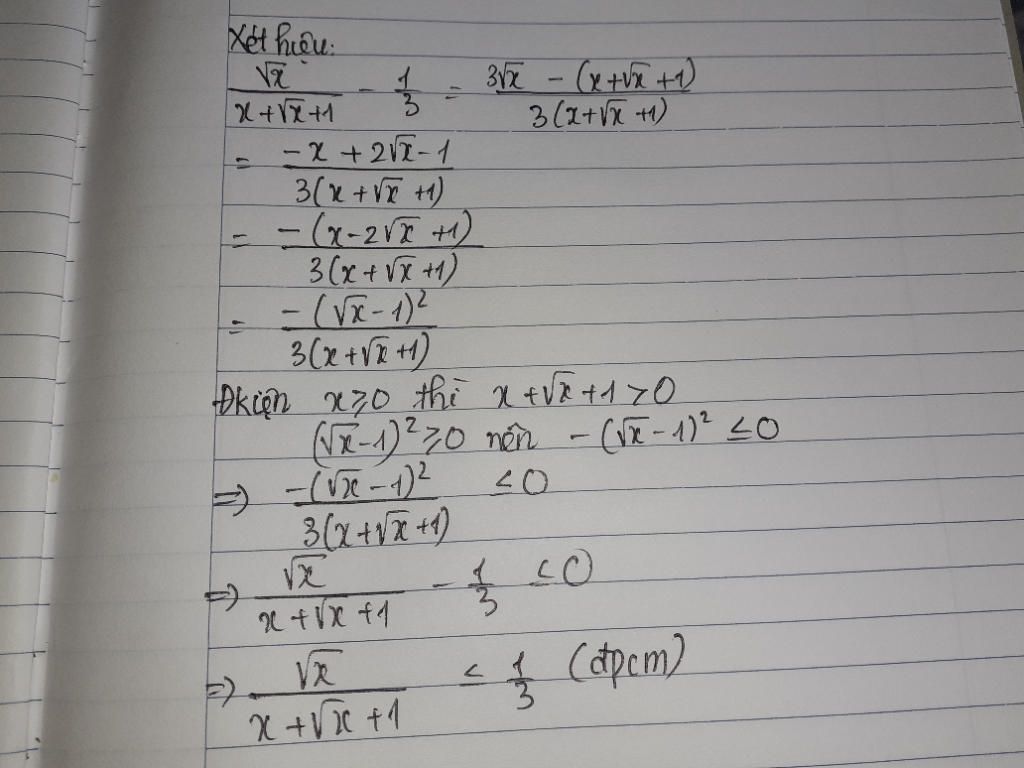 Xét hiệu:
√x/(x+√x+1) - 1/3 = (3√x - (x+√x+1))/(3(x+√x+1))
= (-x + 2√x - 1)/(3(x+√x+1))
= (-(x-2√x+1))/(3(x+√x+1))
= (-(√x-1)²)/(3(x+√x+1))
Đkiện x≥0 thì x+√x+1>0
(√x-1)²≥0 nên -(√x-1)² ≤0
=> (-(√x-1)²)/(3(x+√x+1)) ≤0
=> √x/(x+√x+1) - 1/3 ≤0
=> √x/(x+√x+1) ≤ 1/3 (đpcm)